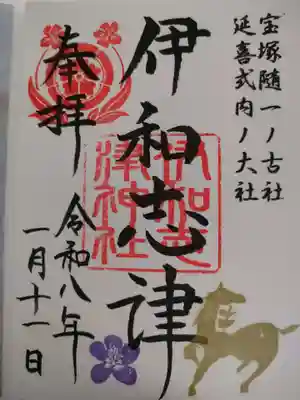 宝塚随一ノ古社
延喜式内ノ大社
伊和志津
伊和志津神社
奉拝
令和八年
一月十一日